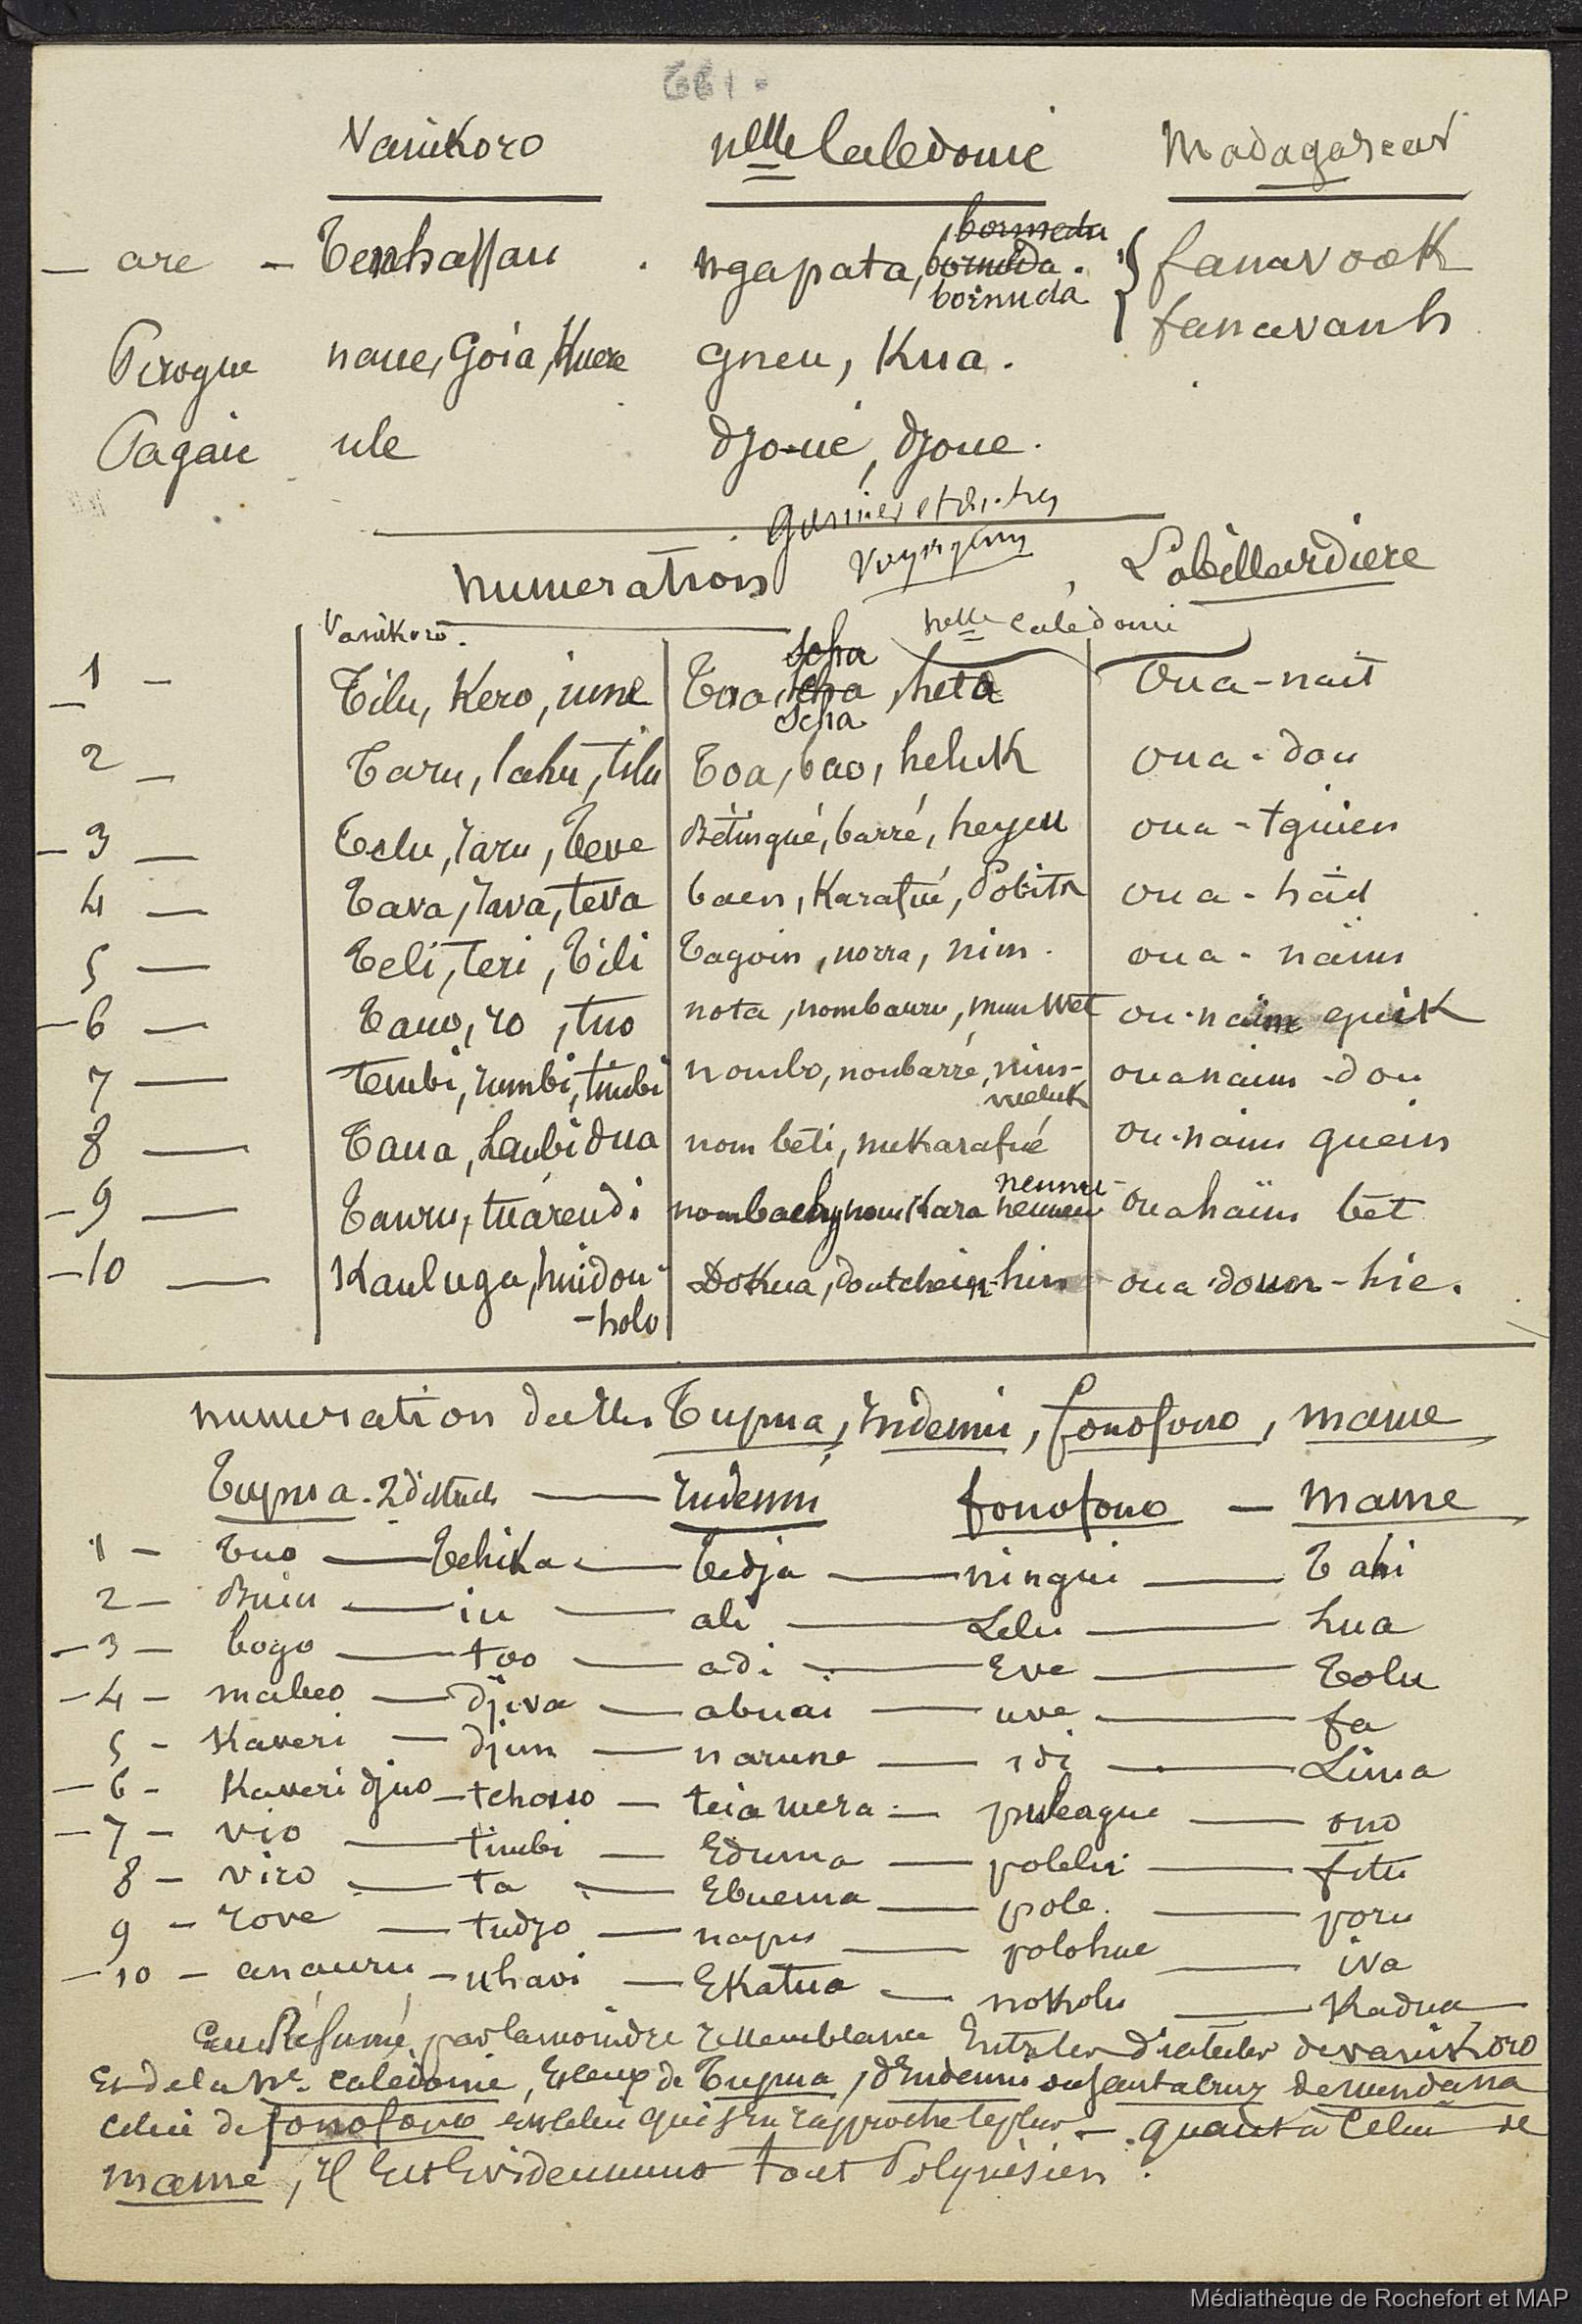 661.
Vanikoro nelle Caledonie Madagascar
bornuda
— are — Tenhassau . ngapata, bornuda . } fanavook
bornuda fanavanh
Pirogue naue, Goia, Kuere gneu, Kua.
Pagaie ule djo-ué, djoue.
Garnier et
numeration Labillardiere
Vanikoro. nelle Calédonie
scha
1 — Tilu, Kero, iune Taa, scha, heta Oua-nait
scha
2 — Taru, lahu, tilu Toa, bao, heluk oua-dou
3 — Telu, raru, teve Bétingué, barré, heyeu oua-tguien
4 — Tava, rava, teva baen, Karafué, Pobits oua-haïd
5 — Teli, teri, Tili Tagoin, norra, nim. oua-naïm
6 — Tauo, ro, tuo nota, nombauru, nim wet ou-naim guik
7 — tembi, rumbi, timbi nombo, noubarré, nim- ouanaim-dou
weluk
8 — Taua, Leubidua nombeti, nukarafué ou-naim guein
9 — Tauru, tuarendi nennu- ouahaïm bet
10 — Kauluga, huidou- Dokua, doutchein-hin oua doun-hie.
-holo
numeration de Tupua, Indenni, fonofono, mame
Tupua. 2 districts — Indenni fonofono — mame
1 — Tuo — Tchika — Tedja — ningui — Tahi
2 — Buiu — iu — ali — Lelu — hua
3 — bogo — too — adi — Eve — Tolu
4 — mabeo — djiva — abuai — uve — fa
5 — Kaveri — djun — narune — idi — Lima
6 — Kaveri djuo — tchouo — teiamera — puleague — ono
7 — vio — timbi — Eduma — polelu — fitu
8 — viro — ta — Ebuema — pole. — poru
9 — rove — tudjo — napu — polohue — iva
10 — anauru — uhavi — Ekatua — nokolu — Kadua
En Résumé, pas la moindre ressemblance Entre les dialectes de vanikoro
Et de la Nle. calédonie, Et ceux de Tupua, d'Indenni ou Santa Cruz de mendana
celui de fonofono est celui qui s'en rapproche le plus — quant à celui de
mame, Il Est Evidemment tout Polynésien.
Médiathèque de Rochefort et MAP